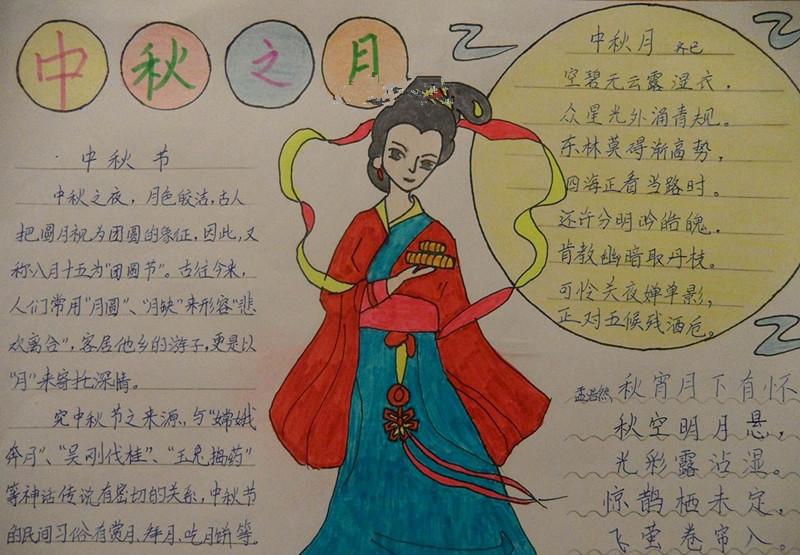 中秋之月
中秋节
中秋之夜，月色皎洁，古人
把圆月视为团圆的象征，因此，又
称八月十五为"团圆节"。古往今来，
人们常用"月圆"、"月缺"来形容"悲
欢离合"，客居他乡的游子，更是以
"月"来寄托深情。
究中秋节之来源，与"嫦娥
奔月"、"吴刚伐桂"、"玉兔捣药"
等神话传说有密切的关系，中秋节
的民间习俗有赏月、拜月、吃月饼等。
中秋月 齐己
空碧无云露湿衣，
众星光外涌青规。
东林莫碍渐高势，
四海正看当路时。
还许分明吟皓魄，
肯教幽暗取丹枝。
可怜关夜婵单影，
正对五候残酒卮。
孟浩然 秋宵月下有怀
秋空明月悬，
光彩露沾湿。
惊鹊栖未定，
飞萤卷帘入。